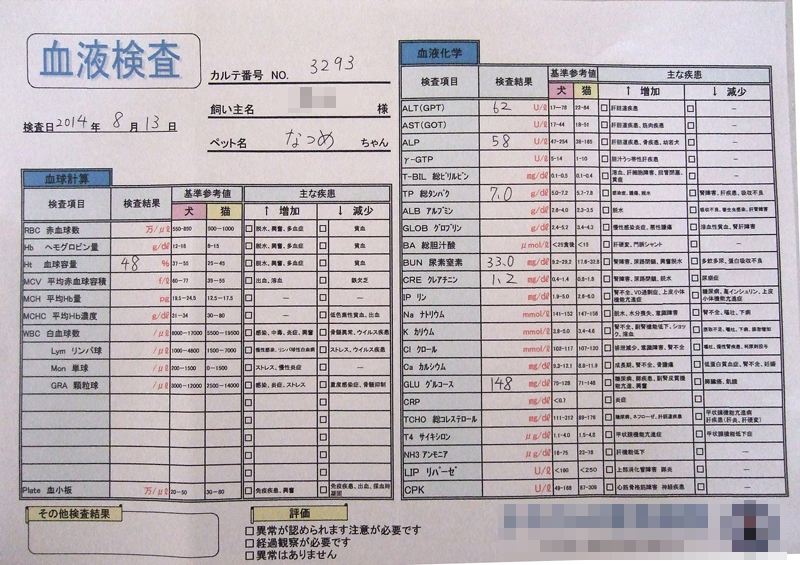 血液検査
検査日 2014年 8月 13日
カルテ番号 NO. 3293
飼い主名 様
ペット名 なつめ ちゃん
血球計算
検査項目 検査結果 基準参考値 主な疾患
犬 猫 ↑ 増加 ↓ 減少
RBC 赤血球数 万/μℓ 550-850 500-1000 脱水、興奮、多血症 貧血
Hb ヘモグロビン量 g/dℓ 12-18 8-15 脱水、興奮、多血症 貧血
Ht 血球容積 48 % 37-55 25-45 脱水、興奮、多血症 貧血
MCV 平均赤血球容積 fℓ 60-77 39-55 出血、溶血 鉄欠乏
MCH 平均Hb量 pg 19.5-24.5 12.5-17.5 — —
MCHC 平均Hb濃度 g/dℓ 31-34 30-80 — 低色素性貧血、出血
WBC 白血球数 /μℓ 6000-17000 5500-19500 感染、中毒、炎症、興奮 骨髄異常、ウイルス疾患
Lym リンパ球 /μℓ 1000-4800 1500-7000 慢性感染、リンパ球性白血病 ストレス、ウイルス疾患
Mon 単球 /μℓ 200-1500 0-1500 ストレス、慢性炎症 —
GRA 顆粒球 /μℓ 3000-12000 2500-14000 感染、炎症、ストレス 重度感染症、骨髄抑制
Plate 血小板 万/μℓ 20-50 30-80 免疫疾患、興奮 免疫疾患、出血、採血時凝固
その他検査結果
評価
異常が認められます注意が必要です
経過観察が必要です
異常はありません
血液化学
検査項目 検査結果 基準参考値 主な疾患
犬 猫 ↑ 増加 ↓ 減少
ALT(GPT) 62 U/ℓ 17-78 22-84 肝胆道疾患 —
AST(GOT) U/ℓ 17-44 18-51 肝胆道疾患、筋肉疾患 —
ALP 58 U/ℓ 47-254 38-165 肝胆道疾患、骨疾患、幼若犬 —
γ-GTP U/ℓ 5-14 1-10 胆汁うっ滞性肝疾患 —
T-BIL 総ビリルビン mg/dℓ 0.1-0.5 0.1-0.4 溶血、肝細胞障害、胆管閉塞、黄疸 —
TP 総タンパク 7.0 g/dℓ 5.0-7.2 5.7-7.8 感染症、腫瘍、脱水 腎障害、肝疾患、吸収不良
ALB アルブミン g/dℓ 2.6-4.0 2.3-3.5 脱水
GLOB グロブリン g/dℓ 2.4-5.2 3.4-4.3 慢性感染炎症、悪性腫瘍 溶血性貧血、腎肝障害
BA 総胆汁酸 μmol/ℓ <25食後 <15 肝硬変、門脈シャント —
BUN 尿素窒素 33.0 mg/dℓ 9.2-29.2 17.6-32.8 腎障害、尿路閉鎖、興奮脱水 多飲多尿、蛋白吸収不良
CRE クレアチニン 1.2 mg/dℓ 0.4-1.4 0.8-1.8 腎障害、尿路閉鎖、脱水 尿崩症
IP リン mg/dℓ 1.9-5.0 2.6-6.0 腎不全、VD過剰症、上皮小体機能亢進 糖尿病、高インシュリン、上皮小体機能亢進症
Na ナトリウム mmol/ℓ 141-152 147-156 脱水、水分喪失、意識障害 腎不全、嘔吐、下痢
K カリウム mmol/ℓ 3.8-5.0 3.4-4.6 腎不全、副腎機能低下、ショック、溶血
Cl クロール mmol/ℓ 102-117 107-120 排泄減少、意識障害、腎不全
Ca カルシウム mg/dℓ 9.3-12.1 8.8-11.9 成長期、腎不全、骨腫瘍 低蛋白質血症、腎不全、妊娠
GLU グルコース 148 mg/dℓ 75-128 71-148 糖尿病、膵疾患、副腎皮質機能亢進、興奮 膵臓癌、飢餓
CRP mg/dℓ <0.7 炎症 —
TCHO 総コレステロール mg/dℓ 111-312 89-176 糖尿病、ネフローゼ、肝胆道疾患 甲状腺機能亢進病 肝疾患(肝炎、肝硬変)
T4 サイキシロン μg/dℓ 1.1-4.0 1.5-4.8 甲状腺機能亢進症 甲状腺機能低下症
NH3 アンモニア μg/dℓ 16-75 23-78 肝機能低下 —
LIP リパーゼ U/ℓ <160 <250 上部消化管障害 膵炎 —
CPK U/ℓ 49-166 87-309 心筋骨格筋障害 神経疾患 —